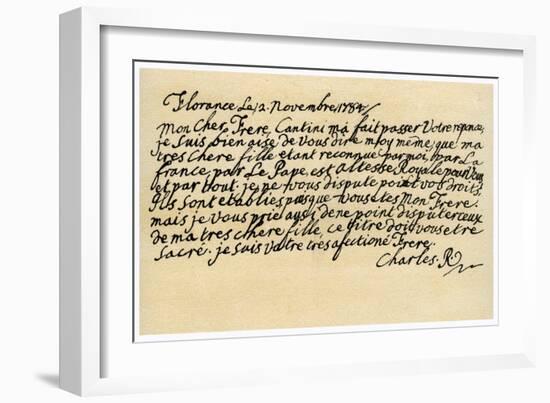 Florance Le 12 Novembre 1784
mon Cher Frere, Cantini ma fait passer Votre reponce,
je suis bien aise de vous dire moy meme, que ma
tres chere fille etant reconnue par moi, par La
france, par Le Pape, est altesse Royale pour Vous
et par tout, je ne vous dispute point vos droits
Ils sont etablies puisque vous etes mon Frere.
mais je vous prie aussi de ne point disputer ceux
de ma tres chere fille, ce titre doit vous etre
Sacré. je suis votre tres afectioné Frere.
Charles. R